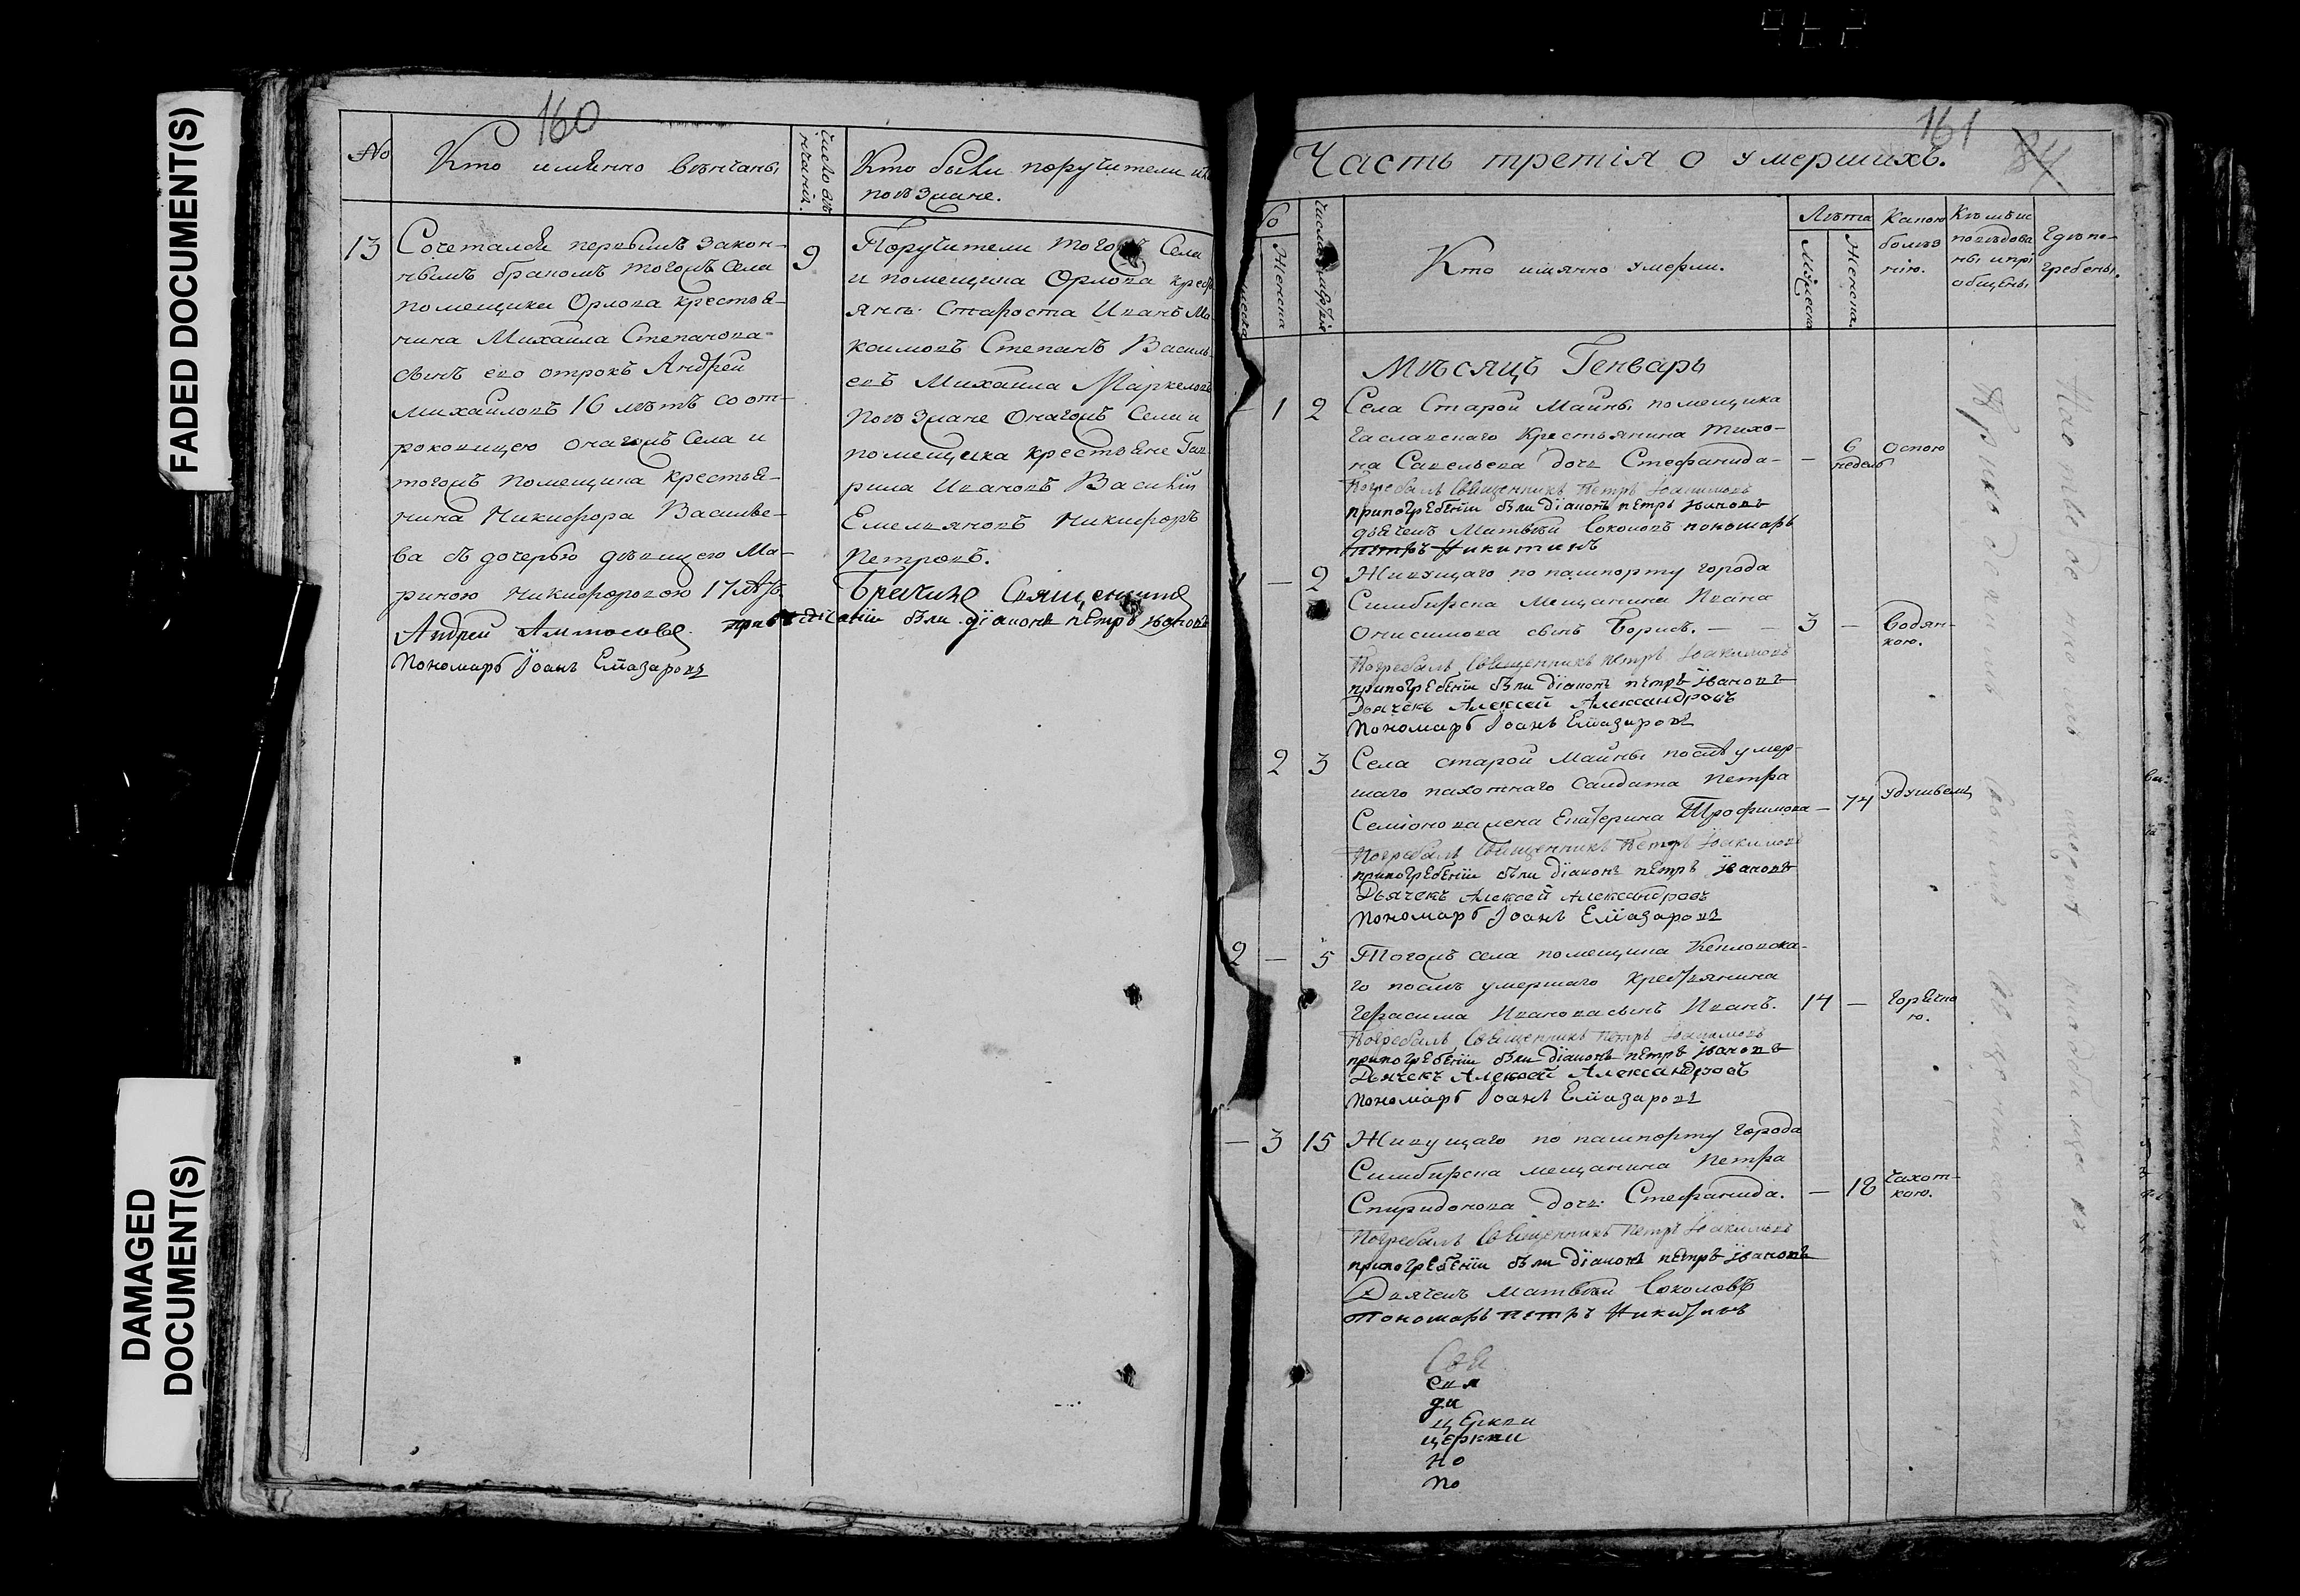 FADED DOCUMENT(S)
DAMAGED
DOCUMENT(S)
160
№
Кто имянно венчаны
Число вѣ
нчанія.
Кто были поручители ихъ
поѣзжане.
13
Сочетался первымъ закон-
нымъ бракомъ тогожъ села
помещика Орлова крестья-
нина Михаила Степанова
сынъ его отрокъ Андрей
Михайловъ 16 лѣтъ со от-
роковицею онагожъ села и
тогожъ помещика крестья-
нина Никифора Василье-
ва съ дочерью дѣвицею Ма-
риною Никифоровою 17 лѣтъ
9
Поручители тогожъ села
и помещика Орлова кресть
янъ: Староста Иванъ Ма
каимовъ Степанъ Василь
евъ Михаила Маркеловъ
Поѣзжане онагожъ села и
помещика крестьяне Гав
рила Ивановъ Василій
Емельяновъ Никифоръ
Петровъ.
Бречине Священникъ
Андрей
были діаконъ петръ ивановъ
Пономарь Іоанъ Елиазаровъ
161
84
Часть третія о умершихъ.
Женска
Кто имянно умерли.
Лѣта
Мужеска
Женска.
Какою
болѣз
нію.
Кѣмъ
исповѣдова
ны и прі
общены
Гдѣ по-
гребены.
Мѣсяцъ Генварь
1 2
Села Старой Майны помещика
крестьянина Тихо-
на Савельева дочь Стефанида –
6
недель
Оспою
Погребалъ Священникъ Петръ Іоакимовъ
припогребеніи были діаконъ петръ ивановъ
дьячекъ Матвей Соколовъ пономарь
петръ Никитинъ
— 2
Живущаго по пашпорту города
Симбирска мещанина Ивана
Онисимова сынъ Борисъ. — —
3 —
Водян-
кою.
Погребалъ Священникъ Петръ Іоакимовъ
припогребеніи были діаконъ петръ ивановъ
Дьячекъ Алексей Александровъ
Пономарь Іоанъ Елиазаровъ
2 3
Села старой Майны послѣ умер-
шаго пахотнаго салдата Петра
Семіонова жена Екатерина Трофимова —
74
удушьемъ
Погребалъ Священникъ Петръ Іоакимовъ
припогребеніи были діаконъ петръ ивановъ
Дьячекъ Алексей Александровъ
Пономарь Іоанъ Елиазаровъ
2 — 5
Тогожъ села помещика
го послѣ умершаго крестьянина
Герасима Иванова сынъ Иванъ.
14 —
Горячко
ю.
Погребалъ Священникъ Петръ Іоакимовъ
припогребеніи были діаконъ петръ ивановъ
Дьячекъ Алексей Александровъ
Пономарь Іоанъ Елиазаровъ
— 3 15
Живущаго по пашпорту города
Симбирска мещанина Петра
Спиридонова дочь Стефанида.
— 18
Чахот-
кою.
Погребалъ Священникъ Петръ Іоакимовъ
припогребеніи были діаконъ петръ ивановъ
Дьячекъ Матвей Соколовъ
Пономарь петръ Никитинъ
Свя
ди
церкви
церкви
Но
По